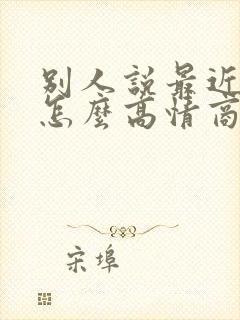 別人說最近
怎麼高情商
宋埠